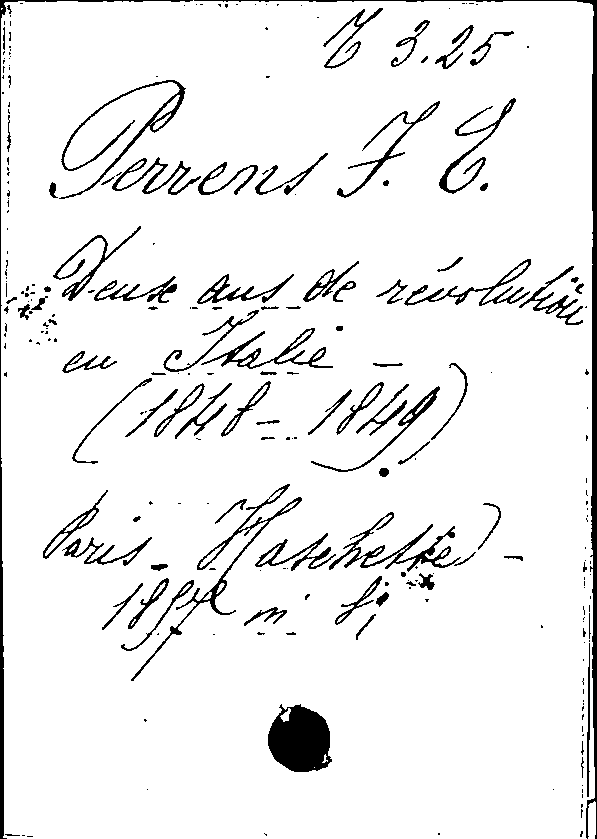 Z 3.25
Perrens F. E.
Deux ans de révolution
en Italie -
(1848 - 1849).
Paris - Hachette -
1857 in 8;